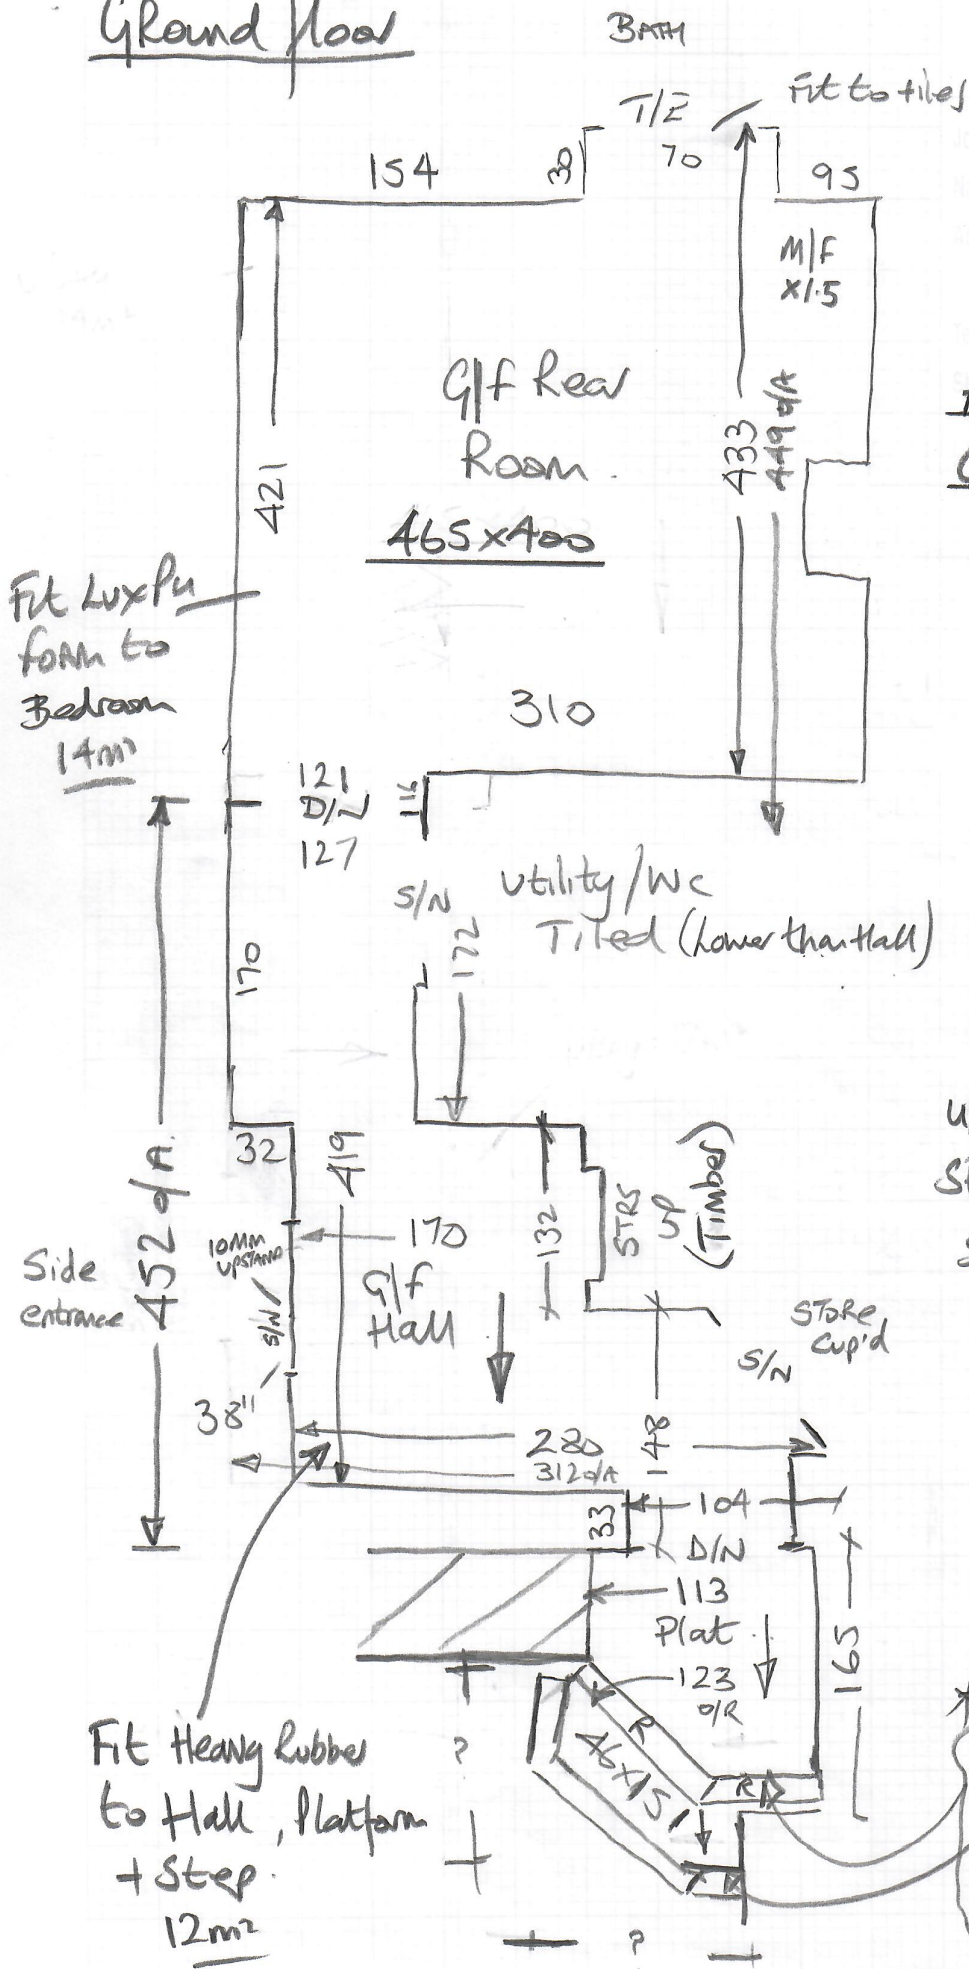 Ground floor
BATH
T/E
Fit to tiles
154
30
70
95
M/F
x1.5
G/F Rear
Room.
465x400
421
433
449 o/A
Fit Lux Pu
foam to
Bedroom
14m²
310
121
D/L
127
116
S/N
172
Utility/Wc
Tiled (Lower than Hall)
170
32
419
452 o/A.
Side
entrance
10MM
UPSTAND
S/N
170
G/f
Hall
132
STRS
UP
(Timber)
STORE
Cup'd
S/N
38"
280
312 o/A
148
33
104
D/N
113
Plat.
123
o/R
165
R
46x15
R
Fit Heavy Rubber
to Hall, Platform
+ Step.
12m²
?
?